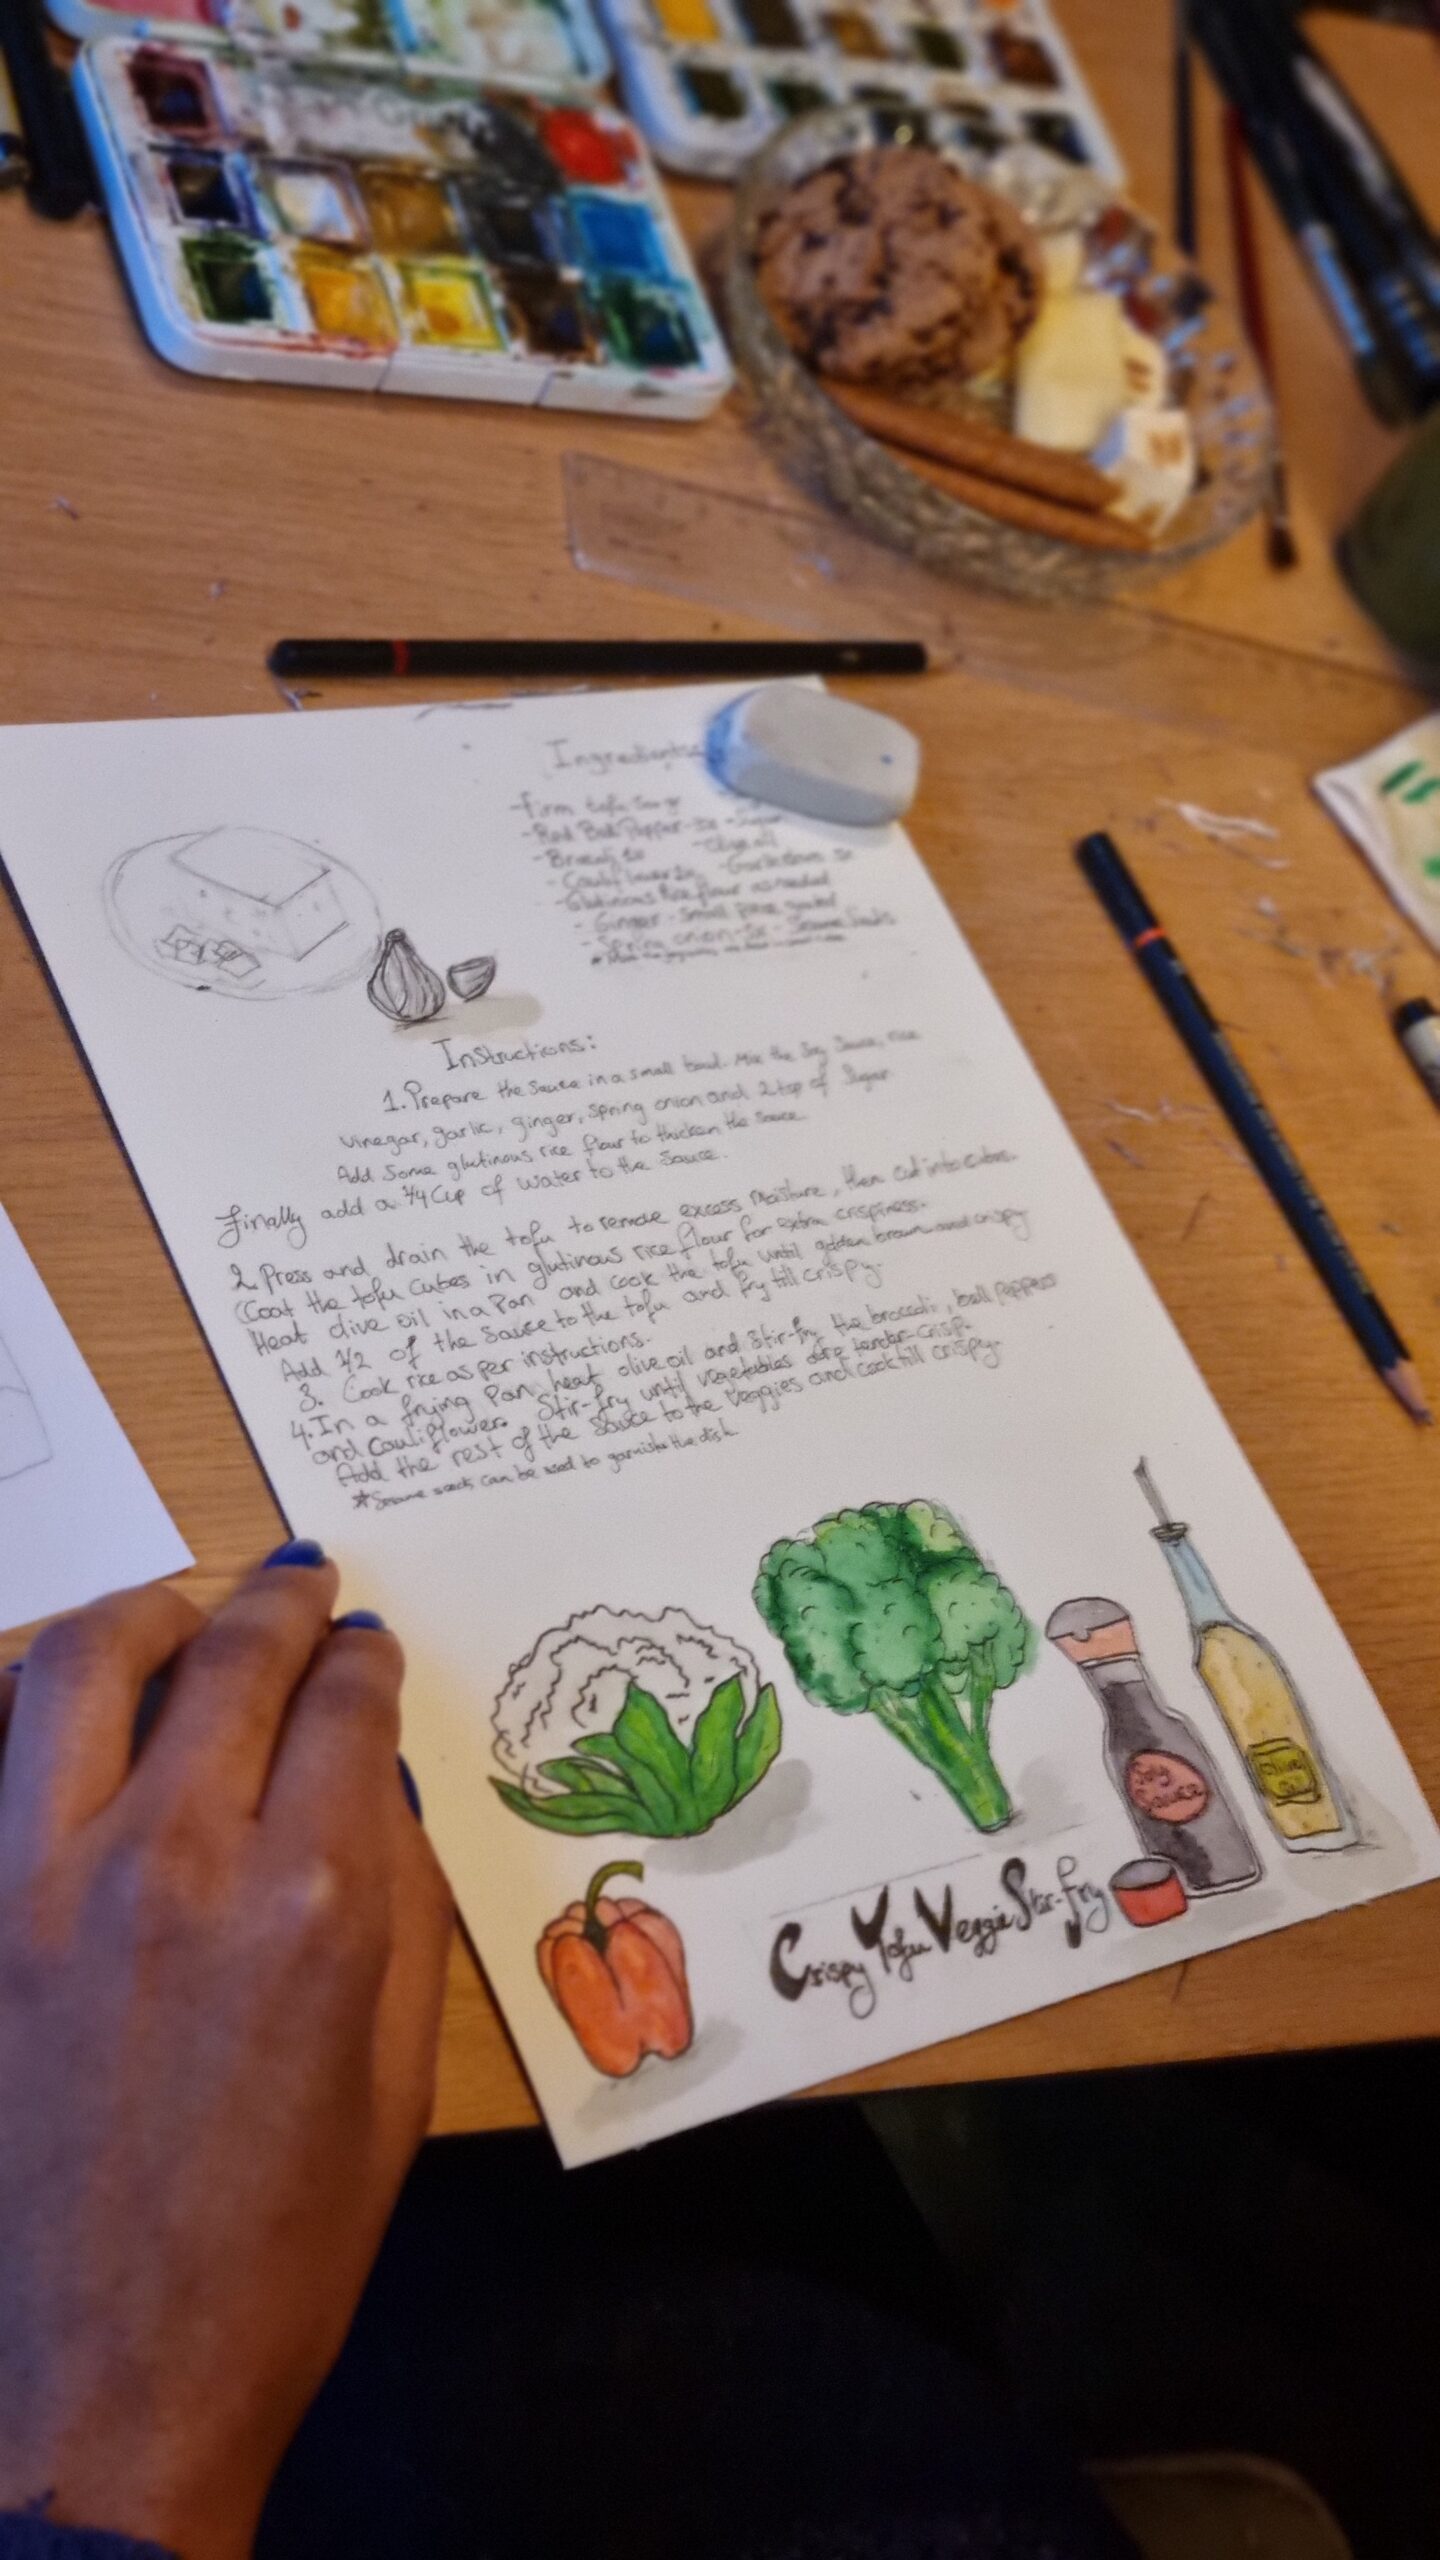 Ingredients
-Firm tofu
-Red Bell Pepper
-Glutinous Rice flour as needed
- Ginger - small piece
- Spring onion
Instructions:
1. Prepare the sauce in a small bowl. Mix the Soy Sauce, rice
vinegar, garlic, ginger, spring onion and 2 tsp of Sugar
Add Some glutinous rice flour to thicken the sauce
Finally add a 1/4 Cup of water to the sauce.
2. Press and drain the tofu to remove excess moisture, then cut into cubes.
(Coat the tofu cubes in glutinous rice flour for extra crispiness.
Heat olive oil in a Pan and cook the tofu until golden brown and crispy
Add 1/2 of the Sauce to the tofu and fry till crispy.
3. Cook rice as per instructions.
4. In a frying Pan, heat olive oil and stir-fry the broccoli, bell peppers
and Cauliflower. Stir-fry until vegetables are tender-crisp.
Add the rest of the Sauce to the veggies and cook till crispy.
*Sesame seeds can be used to garnish the dish.
Soy
Sauce
Olive
Oil
Crispy Tofu Veggie Stir-fry